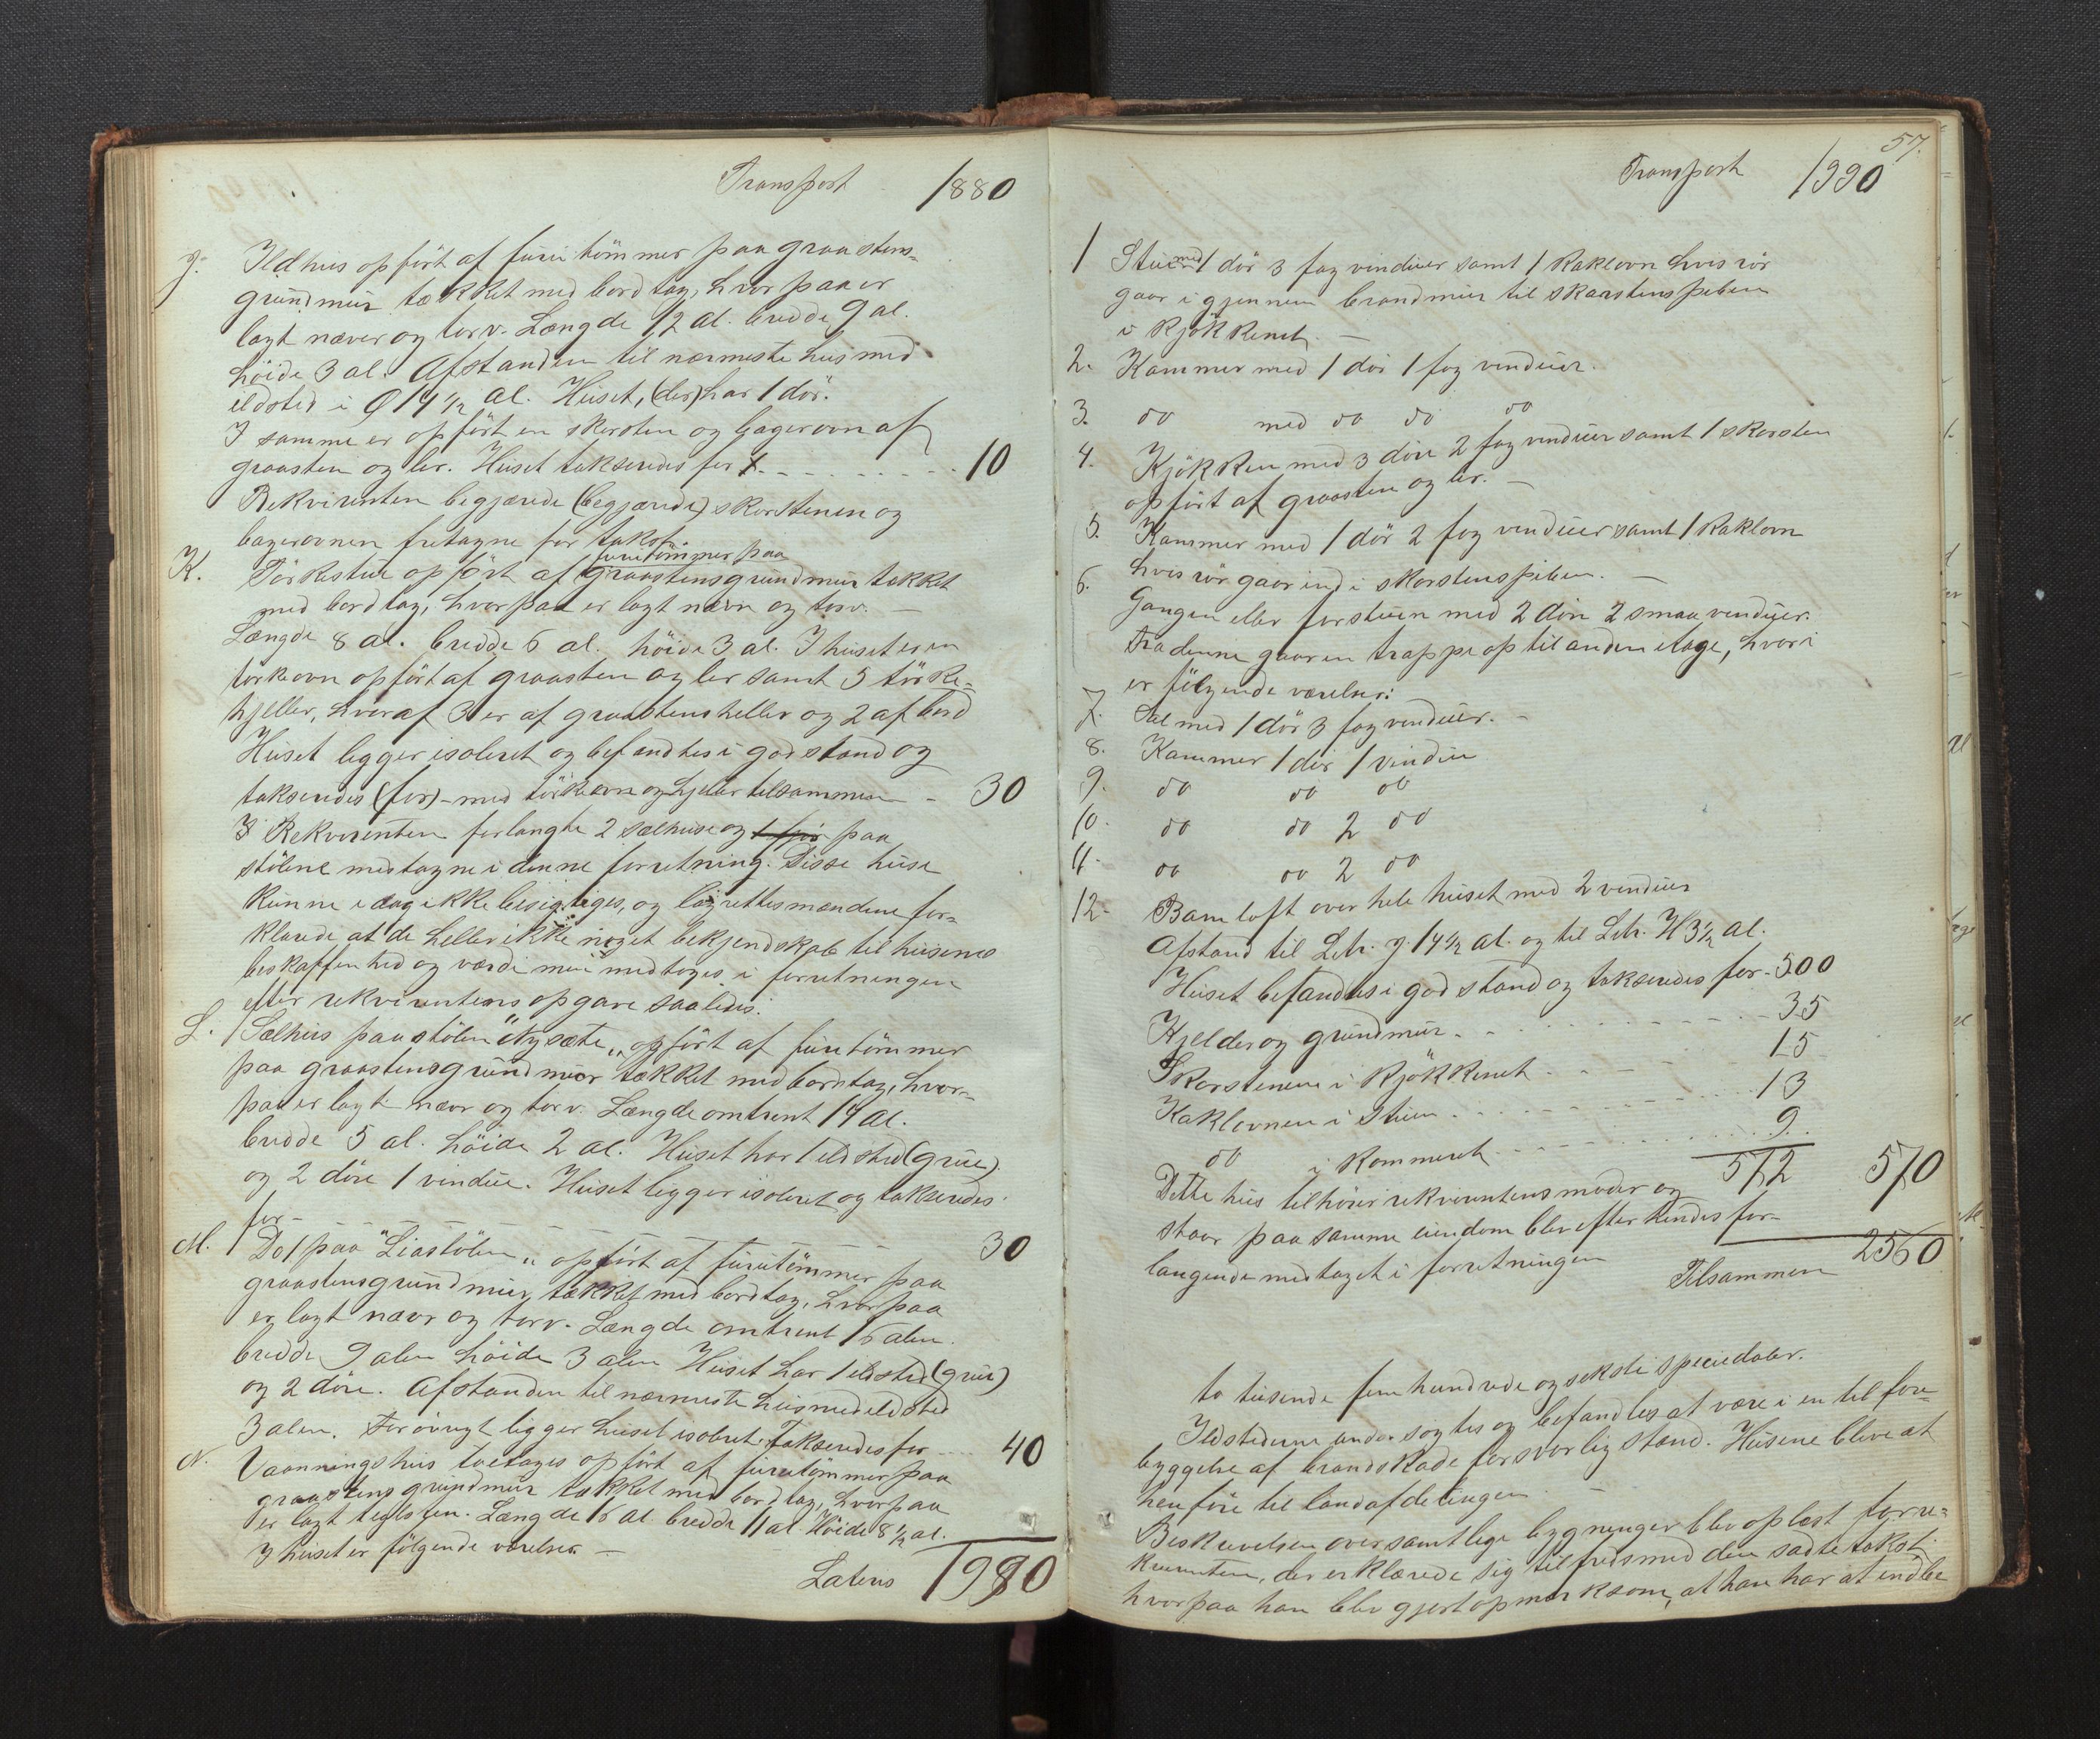 Transport 1880
J. Ildhus opført af furutømmer paa graastens-
grundmur tækket med bordtag, hvorpaa er
lagt næver og torv. Længde 12 al. bredde 9 al.
høide 3 al. Afstanden til nærmeste hus med
ildsted i 14 1/2 al. Huset, (der) har 1 dør.
I samme er opført en skorsten og bagerovn af
graasten og ler. Huset takseredes for - - - 10
Rekvirenten begjærede (begjærede) skorstenen og
bagerovnen fritagne for takst.
furutømmer paa
K. Tørkestue opført af graastensgrundmur tækket
med bordtag, hvorpaa er lagt næver og torv. —
Længde 8 al. bredde 6 al. høide 3 al. I huset er en
tørkeovn opført af graasten og ler samt 5 tørke-
hjeller, hvoraf 3 er af graastensheller og 2 af bord
Huset ligger isoleret og befandtes i god stand og
takseredes (for) - med tørkeovn og hjeller tilsammen - 30
Rekvirenten forlangte 2 sælhuse og paa
stølene medtagne i denne forretning. Disse huse
kunne i dag ikke besigtiges, og lagrettesmændene for-
klarede at de heller ikke noget bekjendskab til husenes
beskaffenhed og værdi men medtoges i forretningen
efter rekvirentens opgave saaledes:
L. 1 Sælhus paa stølen "Nysæte" opført af furutømmer
paa graastensgrundmur tækket med bordtag, hvor-
paa er lagt næver og torv. Længde omtrent 14 al.
bredde 5 al. høide 2 al. Huset har 1 ildsted (grue)
og 2 døre 1 vindue. Huset ligger isoleret og takseredes
for - - - - 30
M. 1 Do / paa "Liastølen" opført af furutømmer paa
graastensgrundmur, tækket med bordtag, hvorpaa
er lagt næver og torv. Længde omtrent 16 alen
bredde 9 alen høide 3 alen Huset har 1 ildsted (grue)
og 2 døre. Afstanden til nærmeste hus med ildsted
3 alen. Forøvrigt ligger huset isoleret. Takseredes for - - 40
N. Vaaningshus toetages opført af furutømmer paa
graastensgrundmur tækket med bordtag, hvorpaa
er lagt teglsten. Længde 16 al. bredde 11 al. Høide 8 1/2 al.
I huset er følgende værelser —
Latens 1990
57.
Transport 1990
1 Stue med 1 dør 3 fag vinduer samt 1 kaklovn hvis rør
gaar igjennem brandmur til skorstenspiben
i kjøkkenet. —
2. Kammer med 1 dør 1 fag vinduer.
3. do med do do do
4. Kjøkken med 3 døre 2 fag vinduer samt 1 skorsten
opført af graasten og ler. —
5. Kammer med 1 dør 2 fag vinduer samt 1 kaklovn
hvis rør gaar ind i skorstenspiben. —
6. Gangen eller forstuen med 2 døre 2 smaa vinduer.
Fra denne gaar en trappe op til anden etage, hvori
er følgende værelser:
7. Sal med 1 dør 3 fag vinduer. -
8. Kammer 1 dør 1 vindue
9. do do do
10. do do 2 do
11. do do 2 do
12. Bare loft over hele huset med 2 vinduer
Afstand til Litr. J. 14 1/2 al. og til Litr. H 3 1/2 al.
Huset befandtes i god stand og takseredes for - 500
Kjelder og grundmur - - - 35
Skorstenen i kjøkkenet - - - 15
Kaklovnen i Stuen - - - 13
do i kammeret - - - 9
Dette hus tilhører rekvirentens moder og 572 570
staar paa samme eiendom blev efter hendes for-
langende medtaget i forretningen
Tilsammen 2560
to tusende fem hundrede og seksti speciedaler.
Ildstederne undersøgtes og befandtes at være i en til fore-
byggelse af brandskade forsvarlig stand. Husene bleve at
henføre til landafdelingen —
Beskrivelsen over samtlige bygninger blev oplæst for re-
kvirenten, der erklærede sig tilfreds med den sadte takst.
hvorpaa han blev gjort opmærksom, at han har at indbe